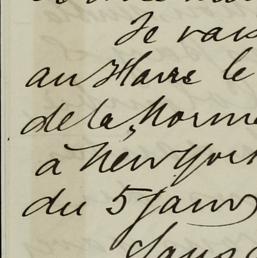 Je vais
au Havre le
de la Norma
à New York
du 5 Janv